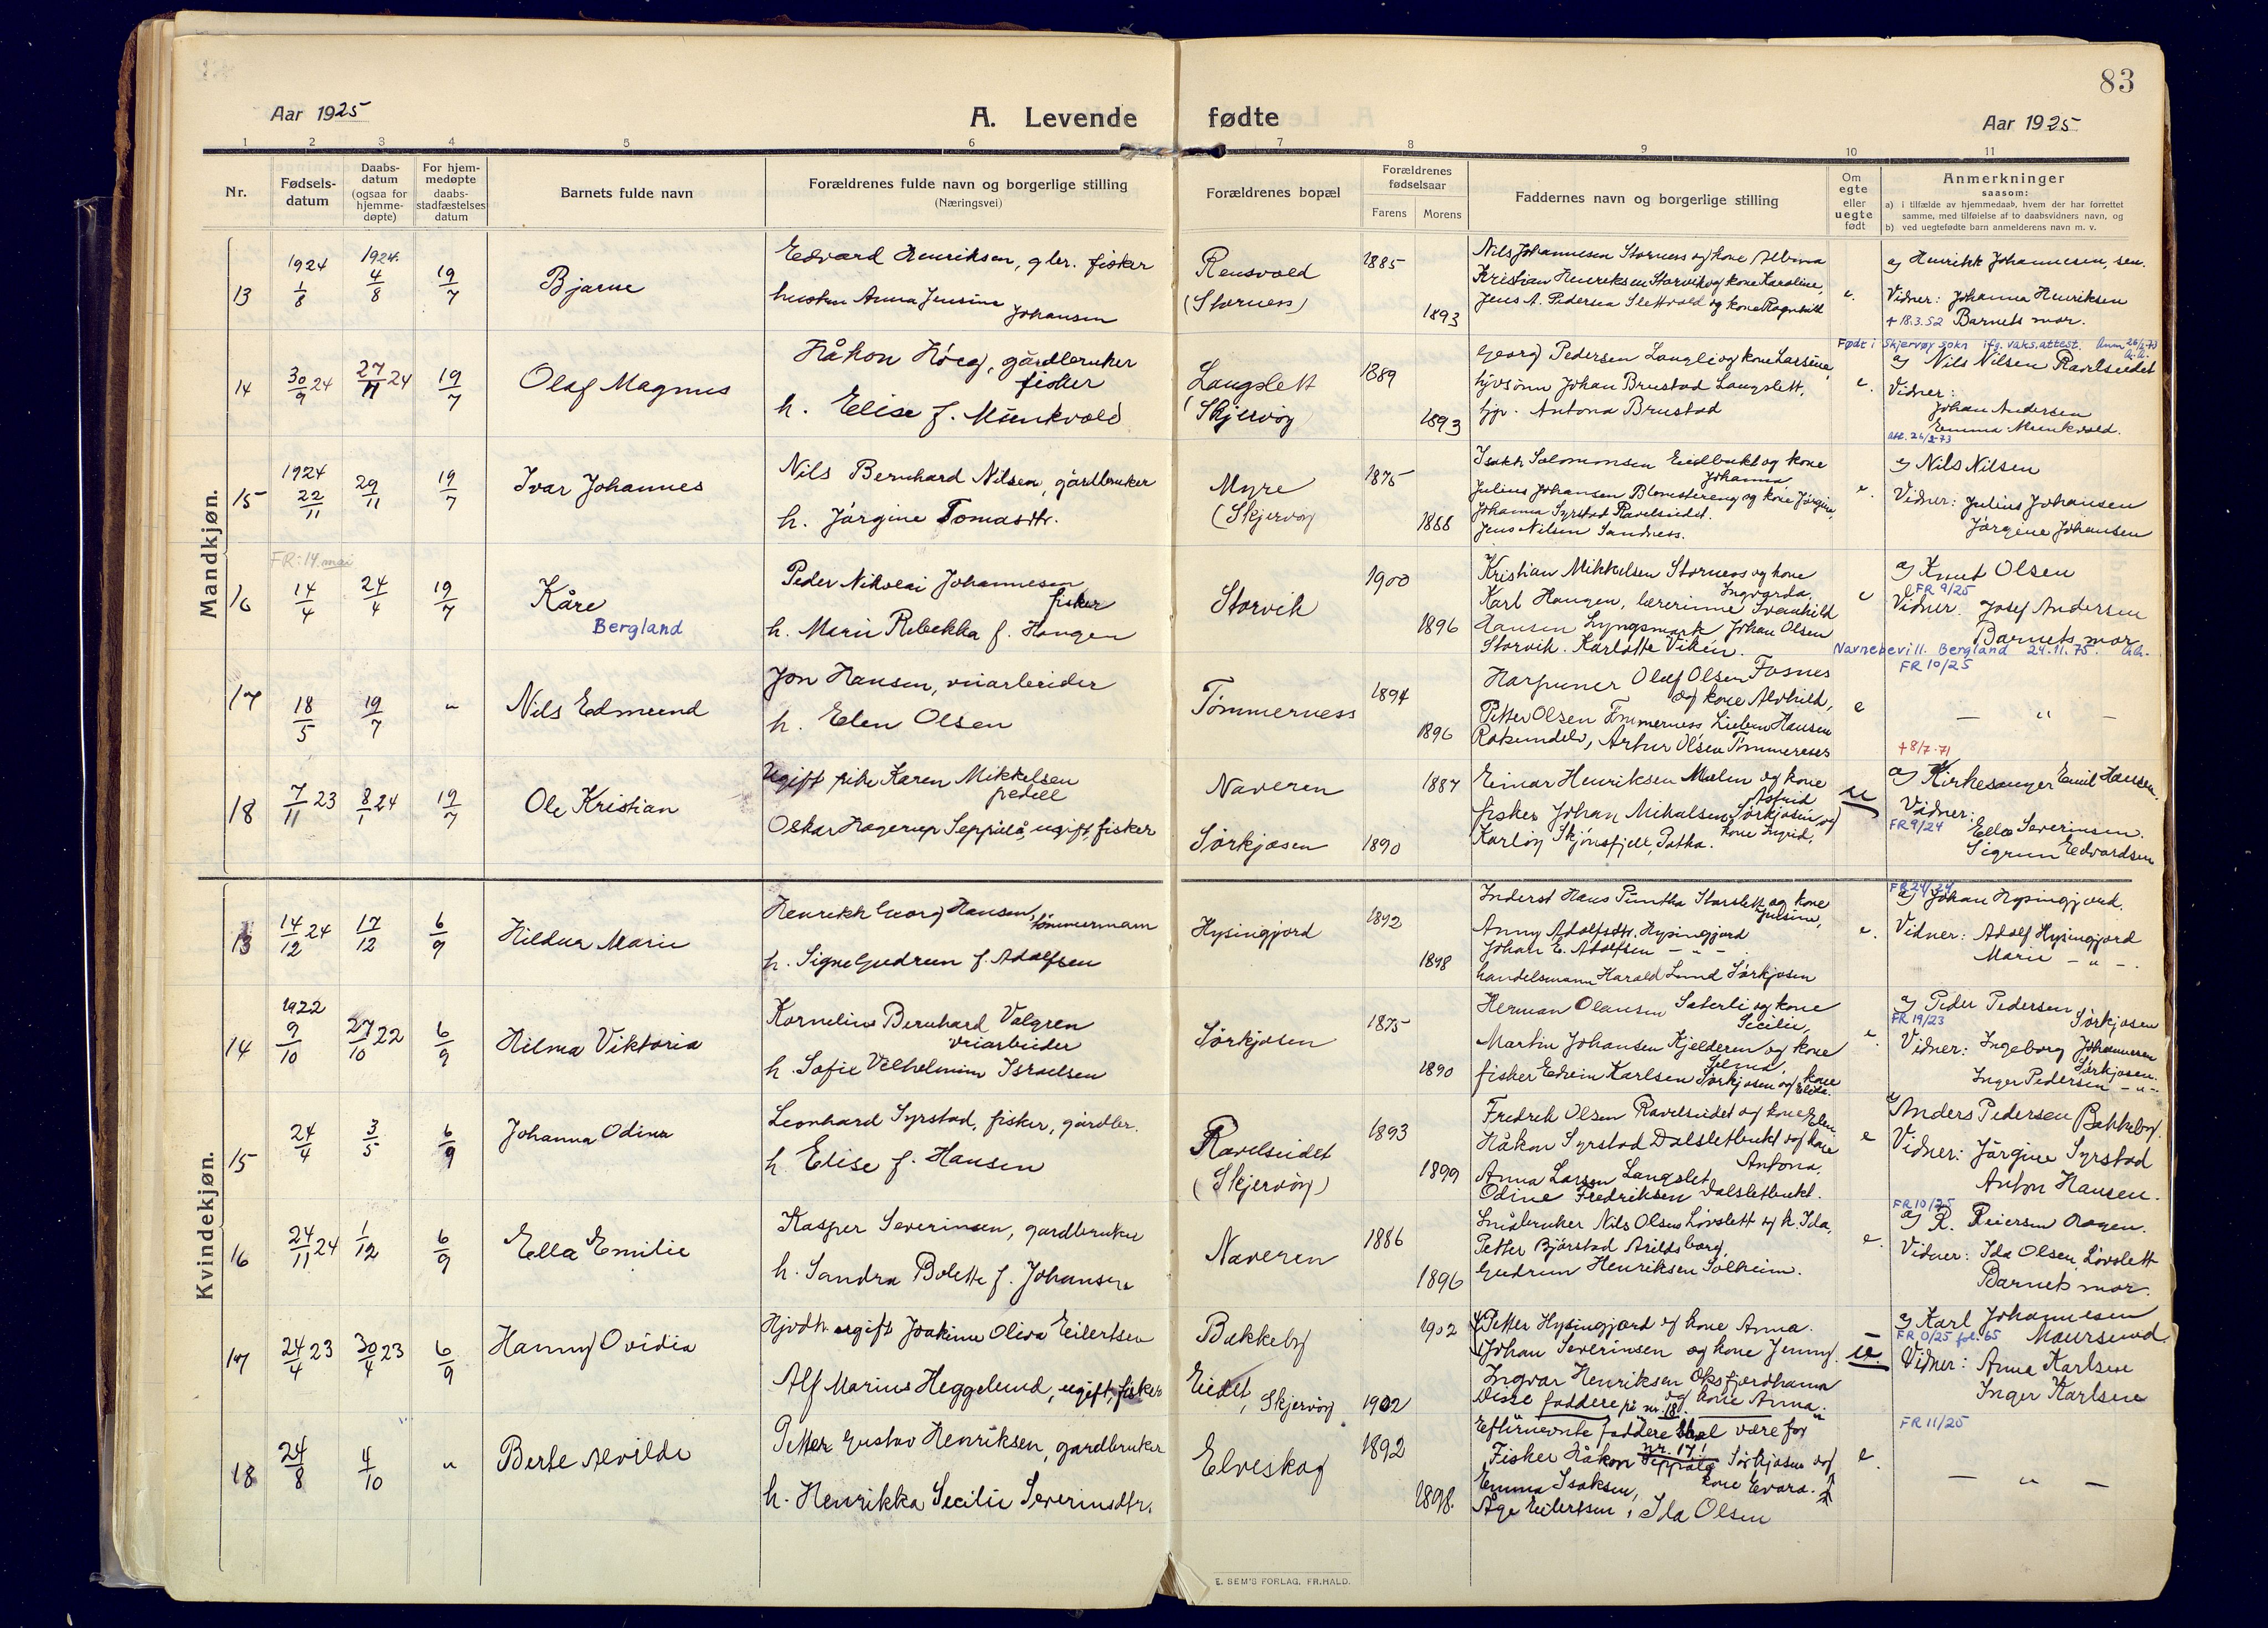 83
Aar 1925
A. Levende fødte
Aar 1925
1 2 3 4 5 6 7 8 9 10 11
Nr.
Fødsels-
datum
Daabs-
datum
(ogsaa for
hjemme-
døpte)
For hjem-
medøpte
daabs-
stadfæstelses
datum
Barnets fulde navn
Forældrenes fulde navn og borgerlige stilling
(Næringsvei)
Forældrenes bopæl
Forældrenes
fødselsaar
Farens Morens
Faddernes navn og borgerlige stilling
Om
egte
eller
uegte
født
Anmerkninger
saasom:
a) i tilfælde av hjemmedaab, hvem der har forrettet
samme, med tilføielse af to daabsvidners navn, og
b) ved uegtefødte barn anmelderens navn m. v.
Mandkjøn.
13
1924
1/8
1924
4/8
19/7
Bjarne
Edvard Henriksen, gbr. fisker
hustru Anna Jensine
Johansen
Rensvold
(Storness)
1885
1893
Nils Johannesen Storness og kone Albina
Kristian Henriksen Storvik og kone Karoline,
Jens A. Pedersen Slettvold og kone Ragnhild
e.
a) Henrikk Johannesen, sen.
Vidner: Johanna Henriksen
+ 18.3.52 Barnets mor.
14
30/9 24
27/11 24
19/7
Olaf Magnus
Håkon Høeg, gårdbruker
fisker
h. Elise f. Munkvold
Langslett
(Skjervøy
1889
1893
Georg Pedersen Langli og kone Lassine,
Johan Brustad Langslett,
Antona Brustad
e.
Født i Skjervøy sokn ifg. vaks.attest.
a) Nils Nilsen Ravelseidet
Vidner:
Johan Andersen
Emma Munkvold.
15
1924
22/11
29/11
19/7
Ivar Johannes
Nils Bernhard Nilsen, gårdbruker
h. Jørgine Tomasdtr.
Myre
(Skjervøy
1875
1888
Isak Salomonsen Eidbukt og kone
Johanna,
Julius Johansen Blomstereng og kone Jørgine,
Johanna Syrstad Ravelseidet.
Jens Nilsen Sandness.
e.
a) Nils Nilsen
Vidner: Julius Johansen
Jørgine Johansen
16
FR: 14. mai
14/4
24/4
19/7
Kåre
Bergland
Peder Nikolai Johannesen
fisker
h. Marie Rebekka f. Haugen
Storvik
1900
1896
Kristian Mikkelsen Storness og kone
Ingvarda.
Karl Haugen, lærerinne Svanhild
Hansen Lyngsmark Johan Olsen
Storvik. Karlotte Viken.
e
a) Knut Olsen
FR 9/25
Vidner. Josef Andersen
Barnets mor
Navnebevill. Bergland 24.11.75.
17
18/5
19/7
"
Nils Edmund
Jon Hansen, veiarbeider
h. Elen Olsen
Tømmerness
1894
1896
Harpuner Olaf Olsen Fosnes
og kone Alvhild,
Petter Olsen Tømmerness Hansen
Artur Olsen Tømmerness
e
FR 10/25
— " —
18
7/11 23
8/1 24
19/7
Ole Kristian
Ugift pike Karen Mikkelsen
Oskar Hagerup Seppälä, ugift, fisker
Naveren
Sørkjosen
1887
1890
Einar Henriksen Malen og kone
Astrid
fisker Johan Mikalsen, Sørkjosen, og
kone Ingrid,
Karløy Skjønsfjell, Patka.
u
+ 8/7-71
a) Kirkesanger Emil Hansen.
Vidner:
FR 9/24
Ella Severinsen.
Sigrun Edvardsen
Kvindekjøn.
13
14/12 24
17/12
6/9
Hildur Marie
Henrikk Georg Hansen,
tømmermann
h. Signe Gudrun f. Adolfsen
Hysingjord
1892
1898
Inderst Hans Puntha Storslett og kone
Julsine,
Anny Adolfsdtr. Hysingjord
Johan E. Adolfsen — " —
handelsmann Harald Lund Sørkjosen
e.
FR 24/24
a) Johan Hysingjord.
Vidner: Adolf Hysingjord
Marie — " —.
14
1922
9/10
27/10 22
6/9
Hilma Viktoria
Kornelius Bernhard Valgren
veiarbeider
h. Sofie Vilhelmine Israelsen
Sørkjosen
1875
1890
Herman Olausen Sæterli og kone
Secilie,
Martin Johansen Kjelderen og kone
Selma,
fisker Edvin Karlsen Sørkjosen og kone
Elida.
e.
a) Peder Pedersen
Sørkjosen
FR 19/23
Vidner: Ingeborg Johannesen
Sørkjosen.
Inger Pedersen — " —
15
24/4
3/5
6/9
Johanna Odina
Leonhard Syrstad, fisker, gårdbr.
h. Elise f. Hansen
Ravelseidet
(Skjervøy)
1893
1899
Fredrik Olsen Ravelseidet og kone Elen
Håkon Syrstad Dalsletbukt og kone
Antona,
Anna Larsen Langslet
Odine Fredriksen Dalsletbukt.
e
a) Anders Pedersen Bakkeby.
Vidner: Jørgine Syrstad
Anton Hansen.
16
24/11 24
1/12
6/9
Ella Emilie
Kasper Severinsen, gardbruker
h. Sandra Bolette f. Johansen
Naveren
1886
1896
Småbruker Nils Olsen Løvslett og k. Ida,
Petter Bjørstad Arildsborg,
Gudrun Henriksen Solheim.
e.
FR 10/25
a) R. Reiersen Hagen.
Vidner: Ida Olsen, Løvslett
Barnets mor.
17
24/4 23
30/4 23
6/9
Hanny Ovidia
ugift Joakime Oliva Eilertsen
Alf Marius Heggelund, ugift, fisker
Bakkeby
Eidet, Skjervøy
1902
1902
Petter Hysingjord og kone Anna.
Johan Severinsen og kone Jenny.
Ingvar Henriksen Oksfjordhamn
og kone Anna.
Disse faddere på nr. 18.
u.
a) Karl Johannesen
FR 0/25 fol. 65 Maursund
Vidner: Anna Karlsen
Inger Karlsen
18
24/8
4/10
"
Berte Alvilde
Petter Gustav Henriksen, gardbruker
h. Henrikka Secilie Severinsdtr.
Elveskog
1892
1898.
Efternevnte faddere skal være for
nr. 17!
Fisker Håkon Seppälä Sørkjosen og
kone Evara.
Emma Isaksen,
Åge Eilertsen, Ida Olsen
e.
FR 11/25
— " —
E. SEM'S FORLAG, FR.HALD.